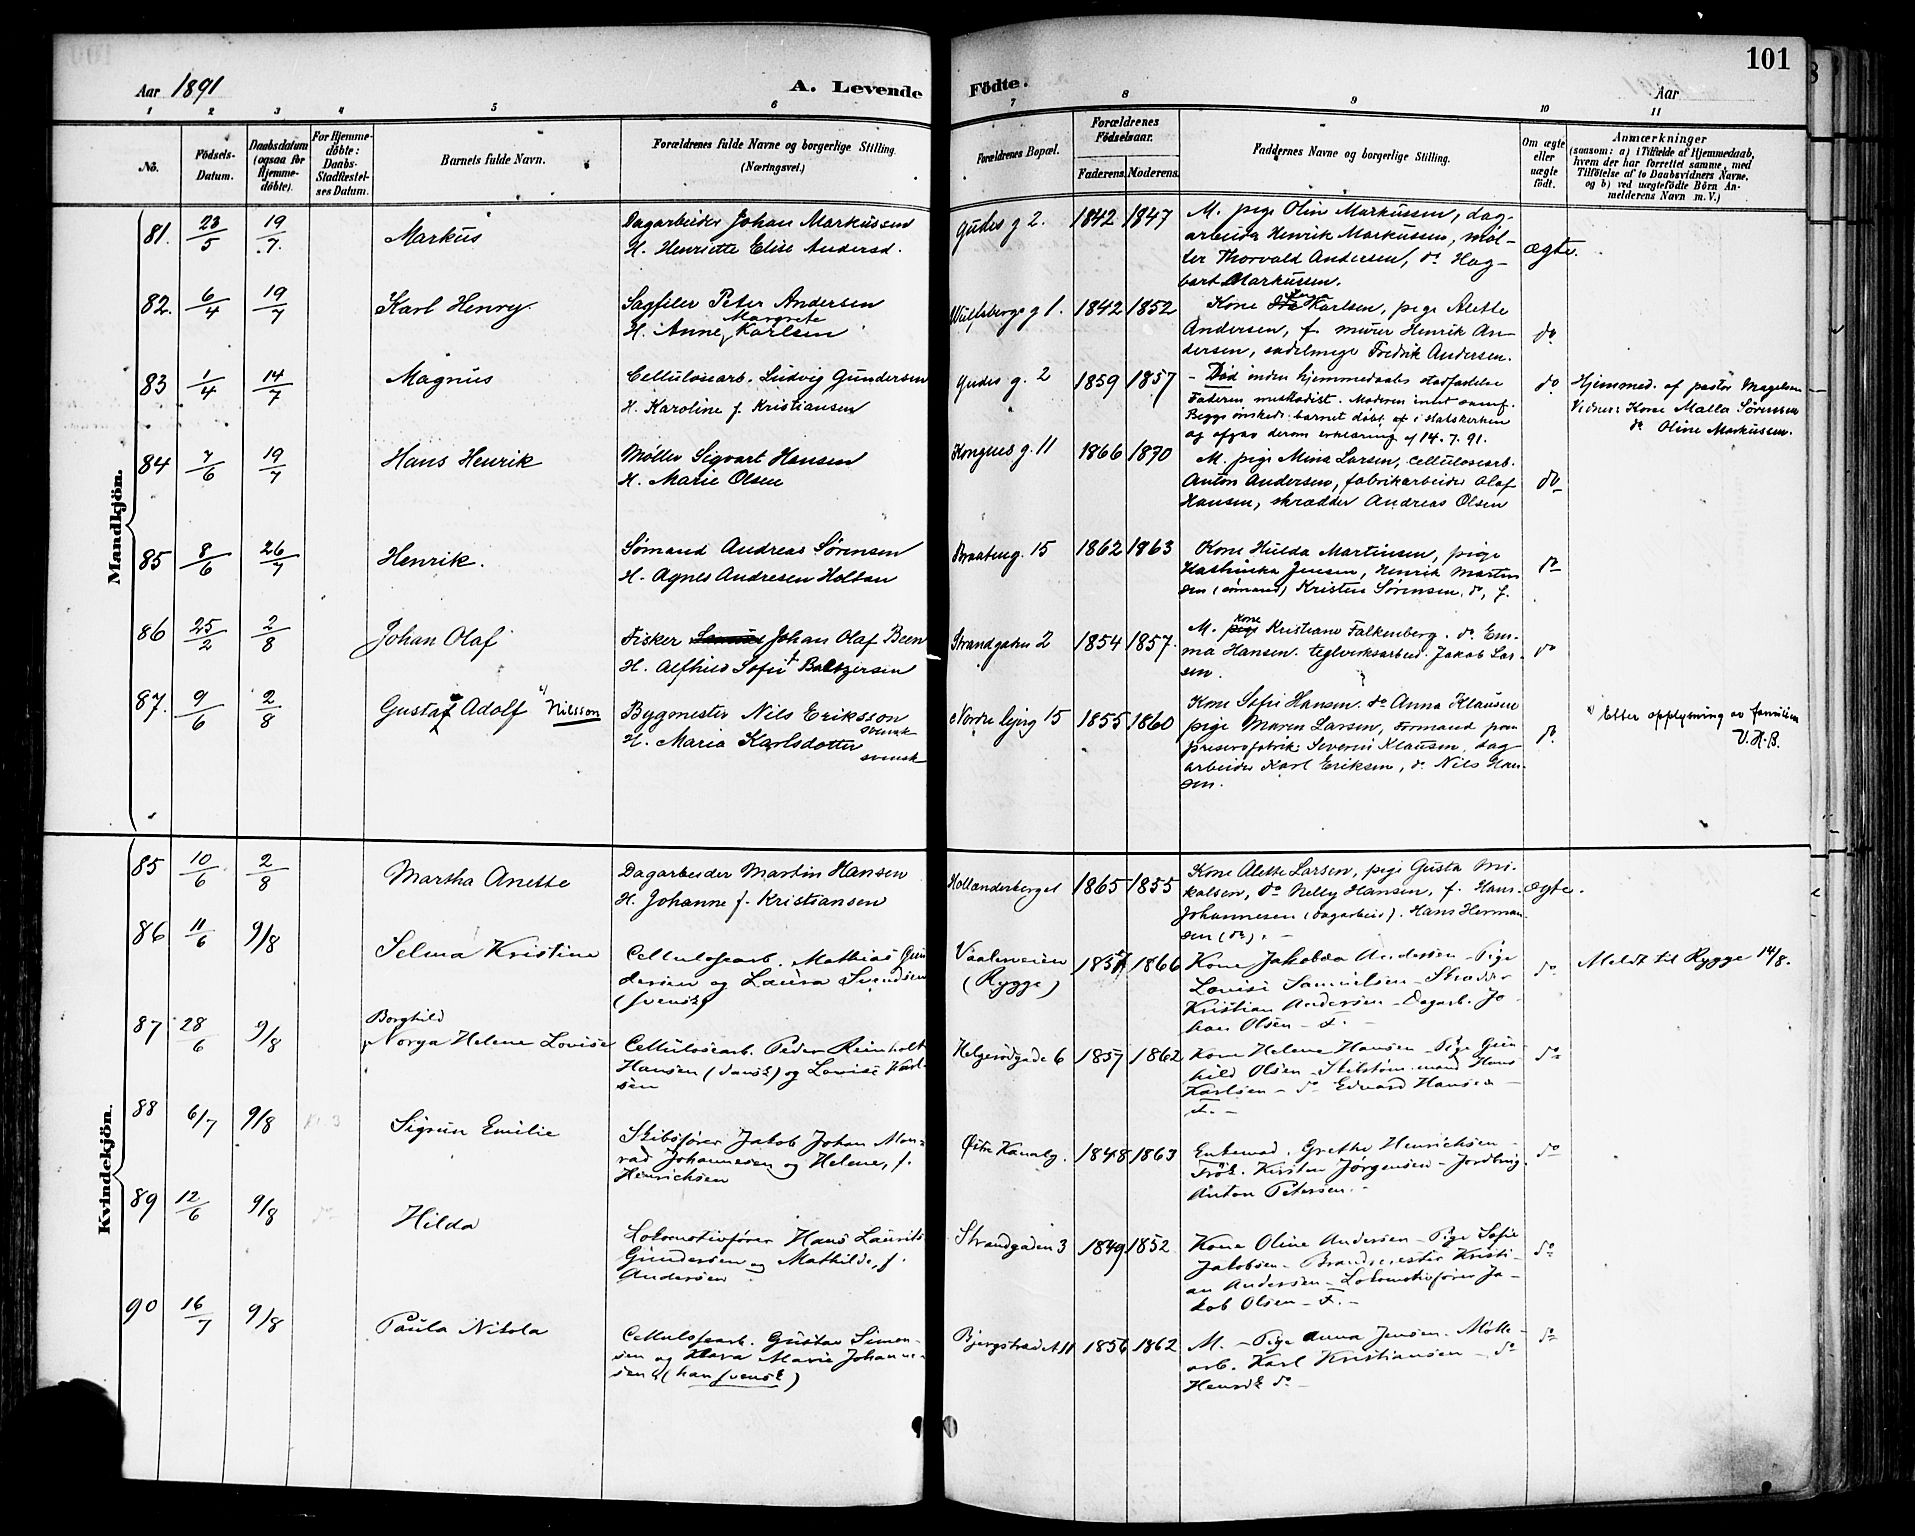 Aar 1891
A. Levende Födte.
101
Aar
1 2 3 4 5 6 7 8 9 10 11
No.
Födsels-
Datum.
Daabsdatum
(ogsaa for
Hjemme-
döbte).
For Hjemme-
döbte:
Daabs-
Stadfæstel-
ses Datum.
Barnets fulde Navn.
Forældrenes fulde Navne og borgerlige Stilling.
(Næringsvei.)
Forældrenes Bopæl.
Forældrenes
Födselsaar.
Faderens. Moderens.
Faddernes Navne og borgerlige Stilling.
Om ægte
eller
uægte
födt.
Anmærkninger
(saasom: a) i Tilfælde af Hjemmedaab,
hvem der har forrettet samme, med
Tilföielse af to Daabsvidners Navne,
og b) ved uægtefödte Börn An-
melderens Navn m. V.)
Mandkjön.
81. 23/5 19/7. Markus
Dagarbeider Johan Markussen
H. Henriette Elise Andersd.
Gudes g 2. 1842 1847
M. pige Olin Markussen, dag-
arbeider Henrik Markussen, møl-
ler Thorvald Andersen, do Hag-
bart Markussen.
ægte.
82. 6/4 19/7 Karl Henry
Sagfiler Peter Andersen
Margrete
H. Anne Karlsen
Wulfsbergs g 1. 1842 1852
Kone Karlsen, pige Alette
Andersen, f. murer Henrik An-
dersen, sadelmager Fredrik Andersen.
do
83 1/4 14/7 Magnus
Cellulosearb. Ludvig Gundersen
H. Karoline f. Kristiansen
Gudes g. 2 1859 1857
- Død inden hjemmedaabs stadfæstelse
Faderen methodist. Moderen intet samf.
Begge ønskede barnet døbt i Statskirken
og afgav derom erklæring af 14.7.91.
do
Hjemmed. af pastor Magelsen
Vidner: Kone Malla Sørensen
do Oline Markussen.
84 7/6 19/7 Hans Henrik
Møller Sigvart Hansen
H. Marie Olsen
Kongens g. 11 1866 1870
M. pige Mina Larsen, cellulosearb.
Anton Andersen, fabrikarbeider Olaf
Hansen, skrædder Andreas Olsen
do
85 8/6 26/7 Henrik.
Sømand Andreas Sørensen
H. Agnes Andresen Holtan
Braateng. 15 1862 1863
Kone Hulda Martinsen, pige
Jensen, Henrik Martin
sen (sømand) Kristen Sørensen, do, f.
do
86 25/2 2/8 Johan Olaf
Fisker Johan Olaf Been
H. Alfhild Sofie Baltzersen
Strandgaden 2 1854 1857.
Kone
M. pige Kristiane Falkenberg. do Em-
ma Hansen. teglverksarbeid. Jakob Lar-
sen.
do
87. 9/6 2/8 Gustaf Adolf Nilsson
Bygmester Nils Eriksson
svensk
H. Maria Karlsdotter
svensk
Nordre bjerg 15 1855 1860
Kone Sofie Hansen. do Anna Klausen
pige Maren Larsen, formand paa
preservefabrik: Severin Klausen, dag
arbeider Karl Eriksen, do Nils Han-
sen.
do
Efter opplysning av familien
V.H.B.
Kvindekjön.
85 10/6 2/8 Martha Anette
Dagarbeider Martin Hansen
H. Johanne f. Kristiansen
Hollænderberget 1865 1855
Kone Alette Larsen, pige Gusta Mi-
kalsen, do Nelly Hansen, f. Hans
Johannesen (Dagarbeid). Hans Herman
sen (do). -
ægte.
86 11/6 9/8 Selma Kristine
Cellulosearb. Mathias Gun
dersen og Laura Svendsen
(svensk)
Vaalerveien
(Rygge)
1857 1866
Kone Jakobea Andersen - Pige
Lovise Samuelsen - Skræder
Kristian Andersen - Dagarb. Jo
han Olsen - F. -
do
Meldt til Rygge 14/8.
87 28/6 9/8
Borghild
Norga Helene Lovise
Cellulosearb. Peder Reinholt
Hansen (dansk) og Lovise Karl-
sen
Helgerødgade 6 1857 1862
Kone Helene Hansen - Pige Gun
hild Olsen - mand Hans
Karlsen - do Edvard Hansen -
F. -
do
88 6/7 9/8 Sigrun Emilie
Skibsfører Jakob Johan Mon-
rad Johannesen og Helene, f.
Henrichsen
Østre Kanalg. 1848 1863
Enkemad. Grethe Henrichsen -
Frök. Kirsten Jörgensen - Jordbrug.
Anton Petersen. -
do
89 12/6 9/8 Hilda
Lokomotivfører Hans Laurits
Gundersen og Mathilde, f.
Andersen
Strandgaden 3 1849 1852
Kone Oline Andersen - Pige Sofie
Jakobsen - Brandmester Kristi-
an Andersen - Lokomotivfører Ja-
kob Olsen - F. -
do
90 16/7 9/8 Paula Nikola
Cellulosearb. Gustav Simon-
sen og Klara Marie Johanne-
sen (han svensk)
Bjergstrædet 11 1856 1862
M. - Pige Anna Jensen. Mölle-
arb. Karl Kristiansen - do
Hendk do -
do